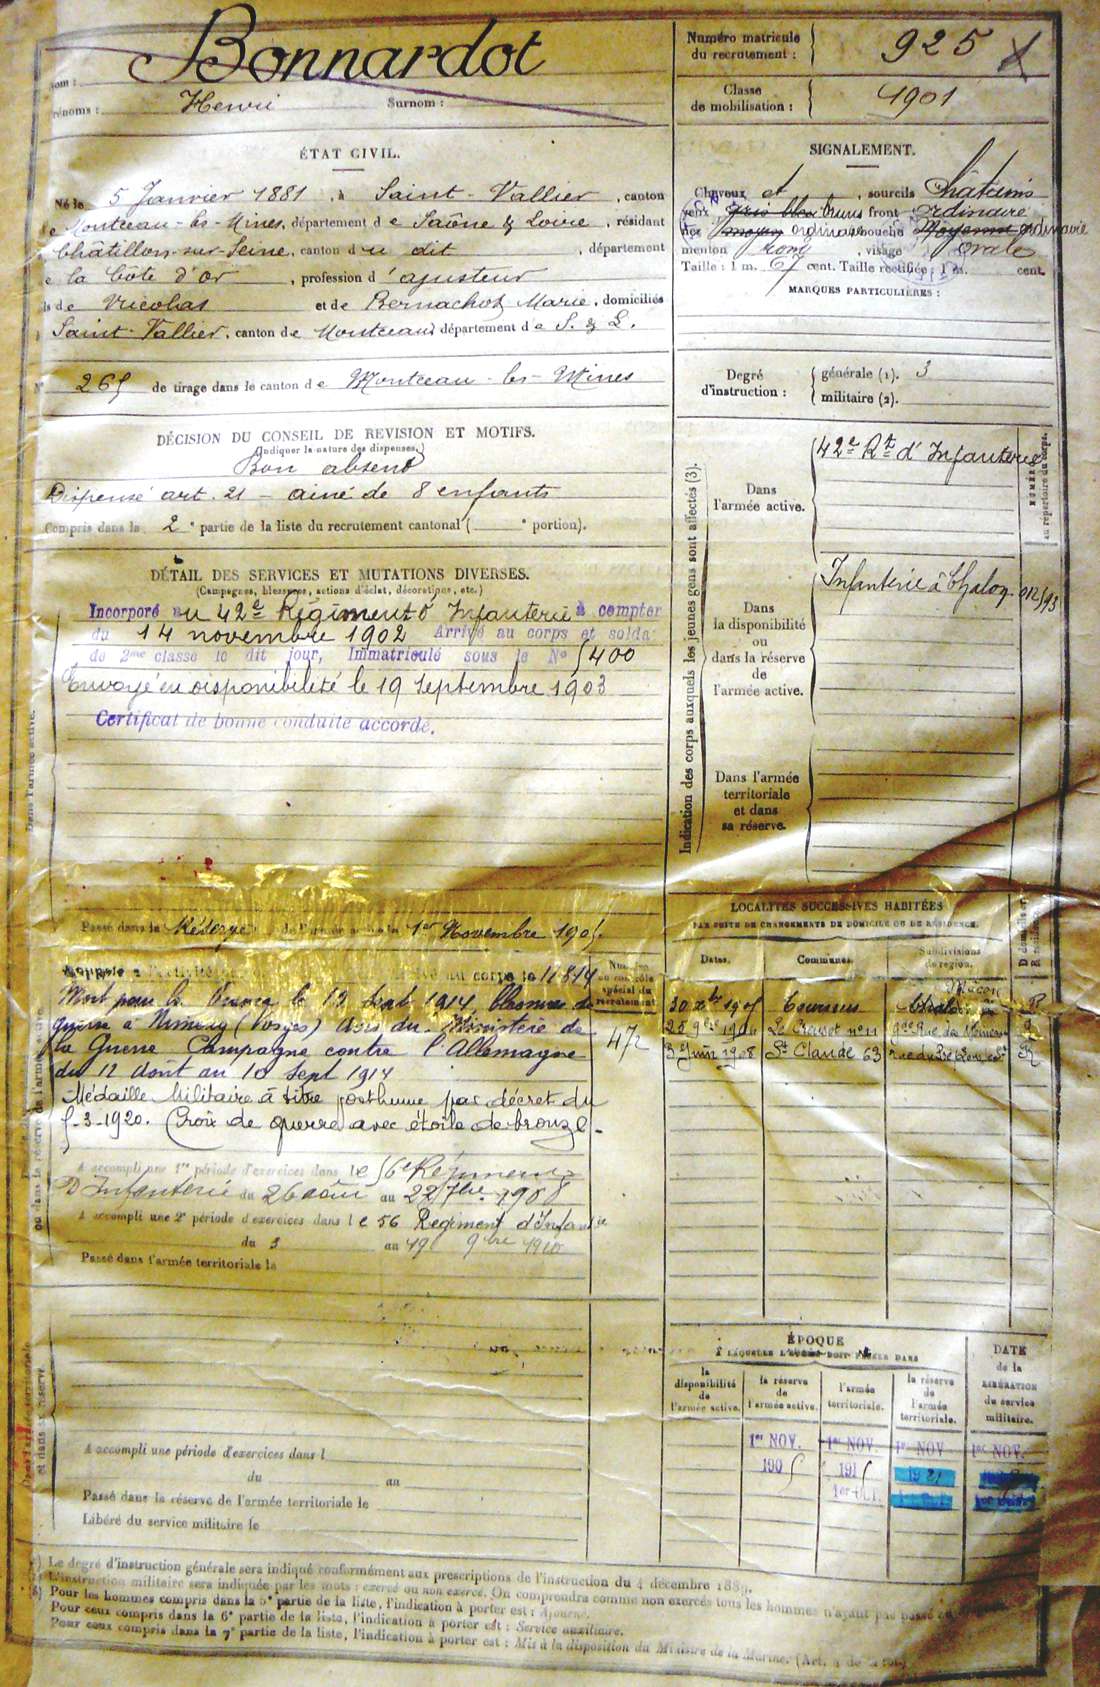 Nom : Bonnardot
Prénoms : Henri Surnom :
Numéro matricule du recrutement : 925
Classe de mobilisation : 1901
ÉTAT CIVIL.
Né le 5 Janvier 1881, à Saint-Vallier, canton
de Montceau-les-Mines, département de Saône & Loire, résidant
Châtillon-sur-Seine, canton du dit, département
de la Côte d'or, profession d'ajusteur
fils de Nicolas et de Bernachot Marie, domiciliés
Saint-Vallier, canton de Montceau, département de S. & L.
N° 265 de tirage dans le canton de Montceau-les-Mines
SIGNALEMENT.
Cheveux et, sourcils Châtains
yeux gris bleu bruns front ordinaire
nez moyen ordinaire bouche Moyenne ordinaire
menton rond, visage Ovale
Taille : 1 m. 67 cent. Taille rectifiée : 1 m. cent.
MARQUES PARTICULIÈRES :
Degré d'instruction : générale (1). 3
militaire (2).
DÉCISION DU CONSEIL DE REVISION ET MOTIFS.
(Indiquer la nature des dispenses.)
Bon absent
Dispensé art. 21 - ainé de 8 enfants
Compris dans la 2e partie de la liste du recrutement cantonal ( e portion).
DÉTAIL DES SERVICES ET MUTATIONS DIVERSES.
(Campagnes, blessures, actions d'éclat, décorations, etc.)
Incorporé au 42e Régiment d'Infanterie à compter
du 14 novembre 1902 Arrivé au corps et soldat
de 2me classe le dit jour, Immatriculé sous le No 5400
Envoyé en disponibilité le 19 Septembre 1903
Certificat de bonne conduite accordé.
Indication des corps auxquels les jeunes gens sont affectés (3).
Dans l'armée active.
42e Rt d'Infanterie
Dans la disponibilité ou dans la réserve de l'armée active.
Infanterie à Chalon
Dans l'armée territoriale et dans sa réserve.
NUMÉROS au répertoire du corps.
Passé dans la Réserve de l'armée active le 1er Novembre 1905.
Rappelé à l'activité arrivé au corps le 11 8 14
Mort pour la France le 12 Sept 1914
guerre à (Vosges) Avis du Ministère de
la Guerre Campagne contre l'Allemagne
du 12 Août au 10 Sept 1914
Médaille Militaire à titre posthume par décret du
5-3-1920. Croix de guerre avec étoile de bronze.
A accompli une 1re période d'exercices dans le 56e Régiment
D'Infanterie du 26 août au 22 7bre 1908
A accompli une 2e période d'exercices dans le 56 Régiment d'Infanterie
du 3 au 19 9bre 1910
Passé dans l'armée territoriale le
Numéro au contrôle spécial du recrutement
472
LOCALITÉS SUCCESSIVES HABITÉES
PAR SUITE DE CHANGEMENTS DE DOMICILE OU DE RÉSIDENCE.
Dates. Communes. Subdivisions de région. D domicile ou R résidence.
30 xbre 1905 Tournus Mâcon R
25 9bre 190 Le Creusot n° 11
3 Juin 1908 St Claude 63 rue du R
ÉPOQUE
À LAQUELLE L'HOMME DOIT PASSER DANS
la disponibilité de l'armée active.
la réserve de l'armée active.
l'armée territoriale.
la réserve de l'armée territoriale.
DATE de la LIBÉRATION du service militaire.
1er NOV. 1er NOV. 1er NOV 1er NOV.
1905 1915 1921
1er OCT.
A accompli une période d'exercices dans l
du au
Passé dans la réserve de l'armée territoriale le
Libéré du service militaire le
(1) Le degré d'instruction générale sera indiqué conformément aux prescriptions de l'instruction du 4 décembre 1889.
(2) L'instruction militaire sera indiquée par les mots : exercé ou non exercé. On comprendra comme non exercés tous les hommes n'ayant pas passé
(3) Pour les hommes compris dans la 5e partie de la liste, l'indication à porter est : Ajourné.
Pour ceux compris dans la 6e partie de la liste, l'indication à porter est : Service auxiliaire.
Pour ceux compris dans la 7e partie de la liste, l'indication à porter est : Mis à la disposition du Ministre de la Marine. (Art. 4 de la loi.)